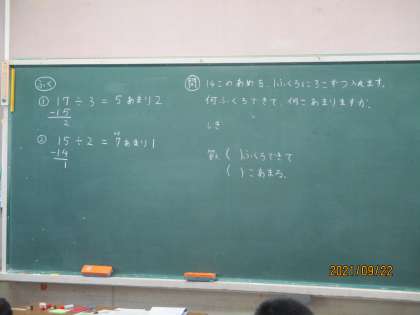 ふく
① 17÷3=5あまり2
-15
2
② 15÷2=7あまり1
-14
1
問 14このあめを、1ふくろに3こずつ入れます。
何ふくろできて、何こあまりますか。
しき
答え ( )ふくろできて
( )こあまる。
2021/09/22